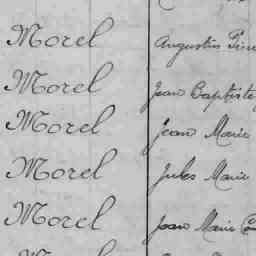 Morel Augustin
Morel Jean Baptiste
Morel Jean Marie
Morel Jules Marie
Morel Jean Marie
Morel